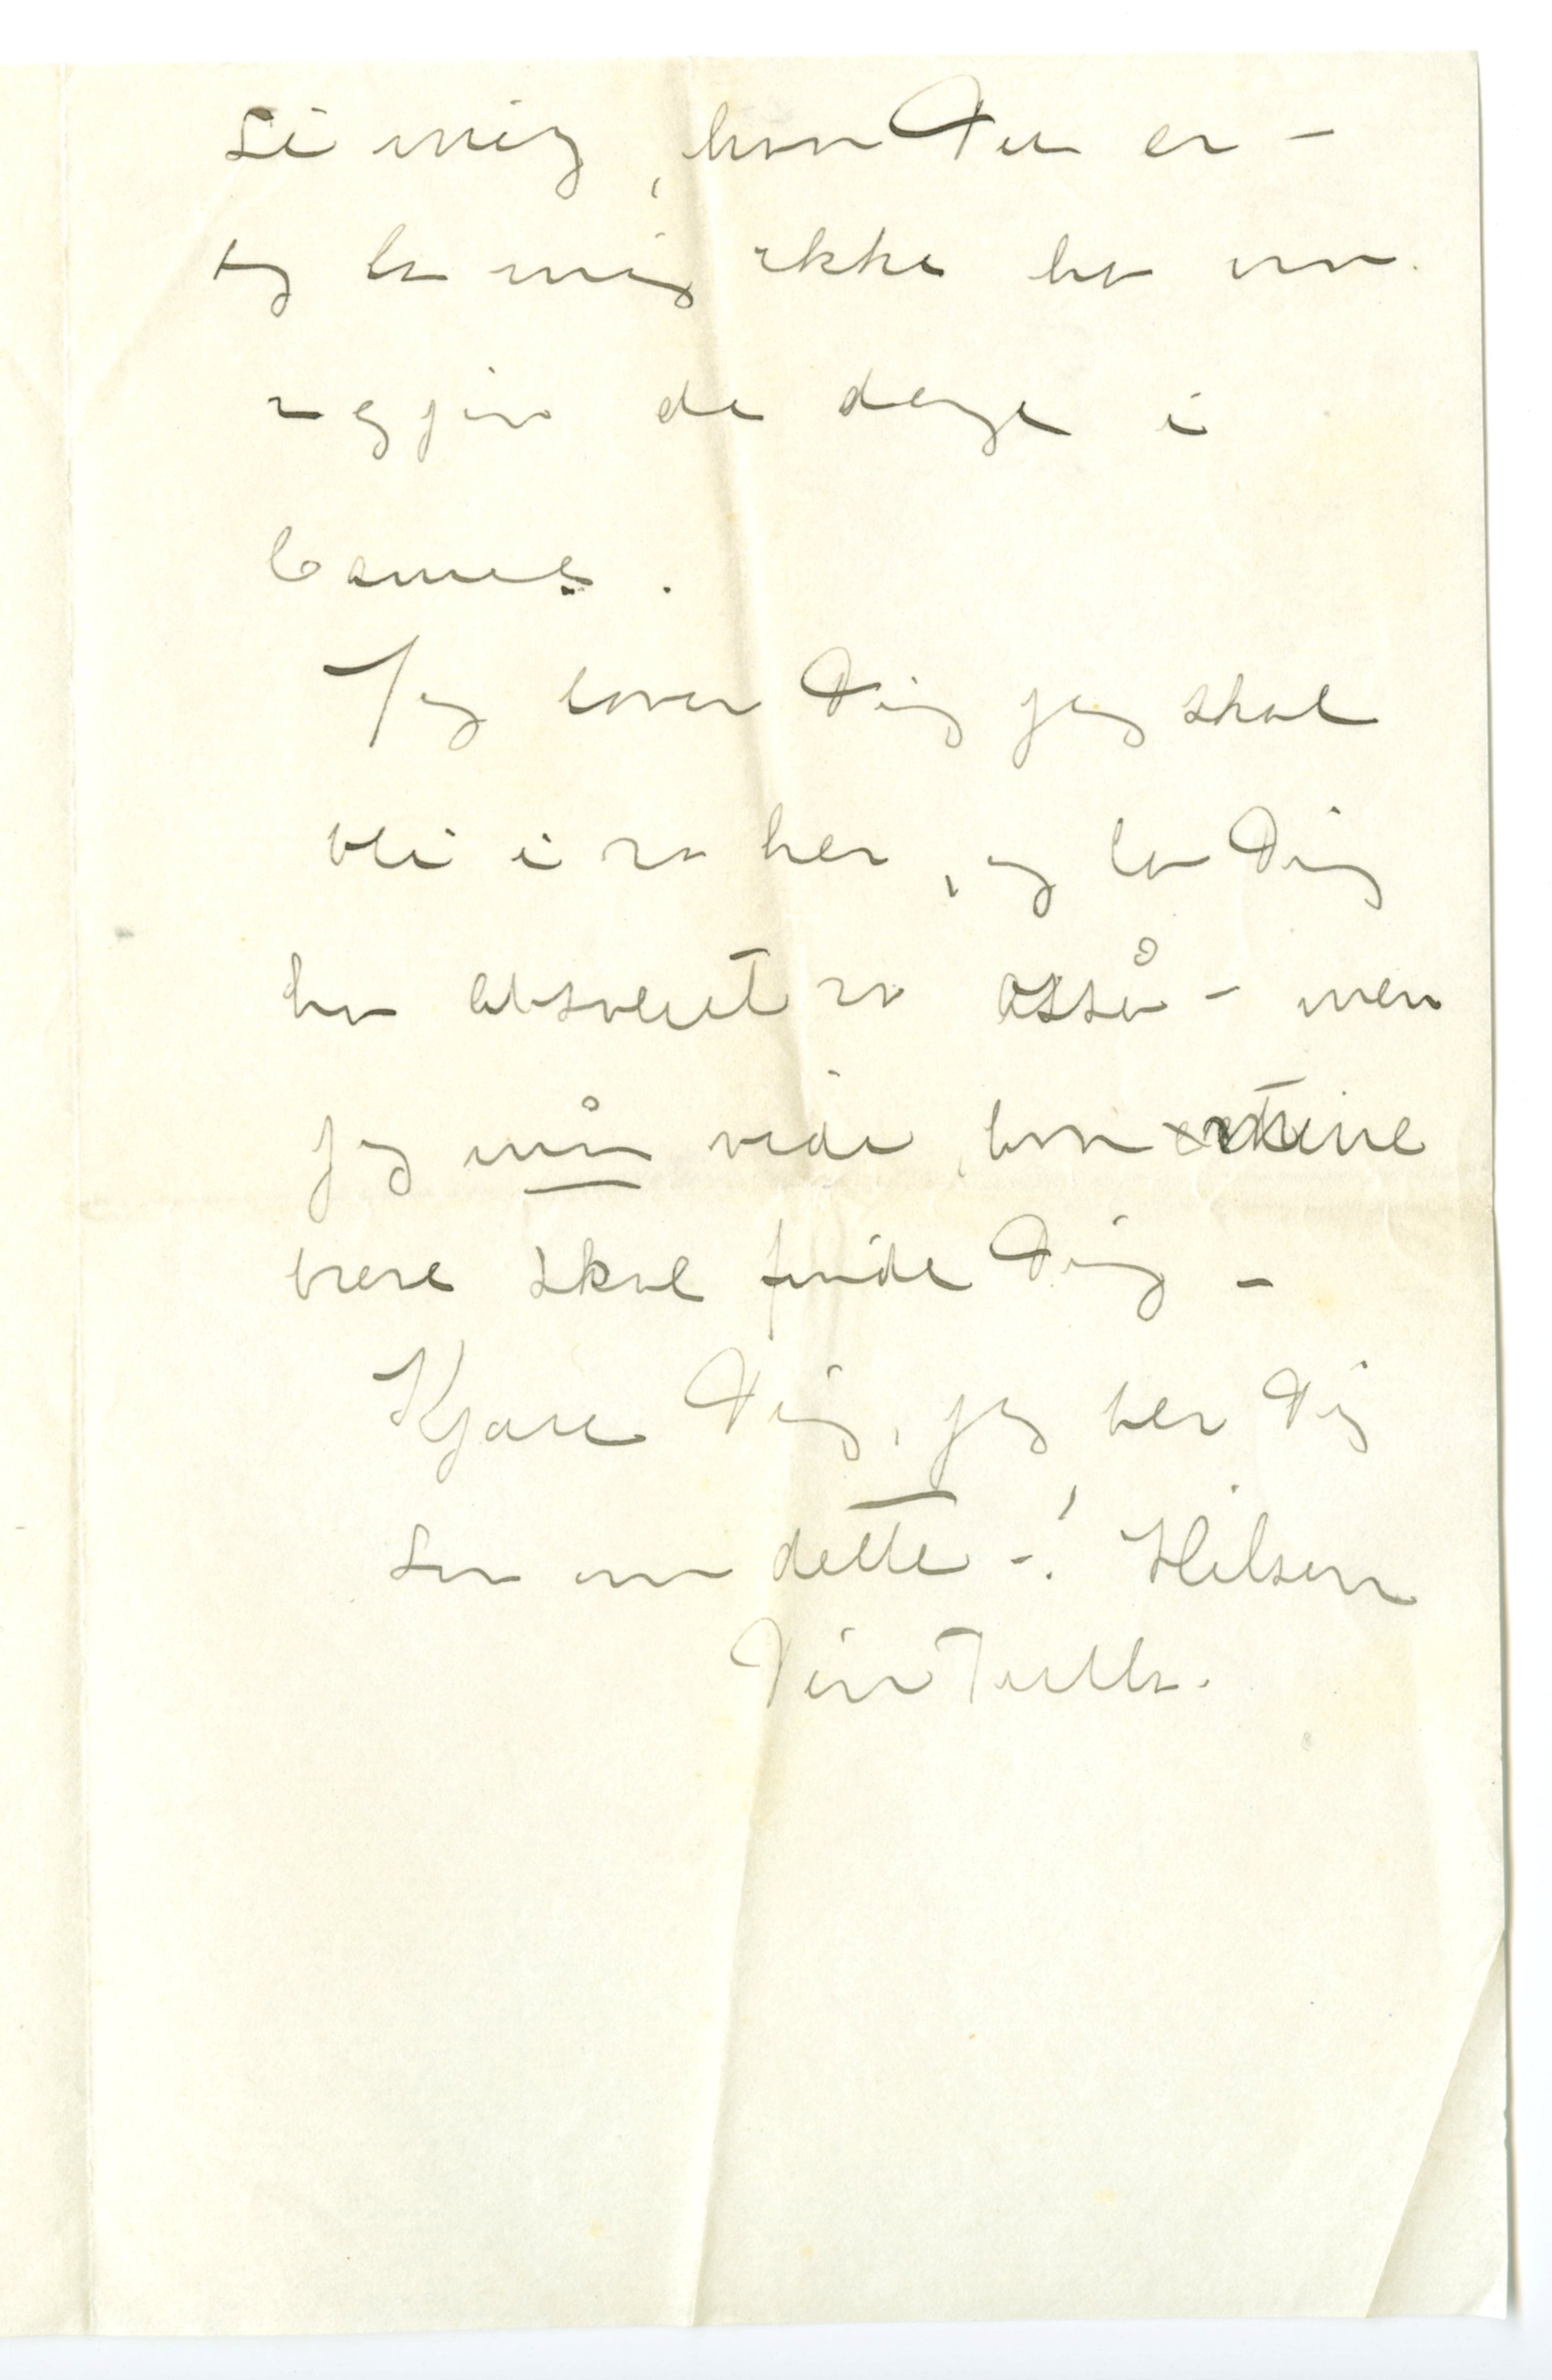 si mig, hvor Du er –
og la mig ikke ha om
igjen de dage i
Cannes.
Jeg lover Dig jeg skal
bli i ro her, og la Dig
ha absolut ro osså – men
jeg må vide, hvor mine
breve skal finde Dig –
Kjære Dig, jeg ber Dig
såm om dette –! Hilsen
Din Tulla.